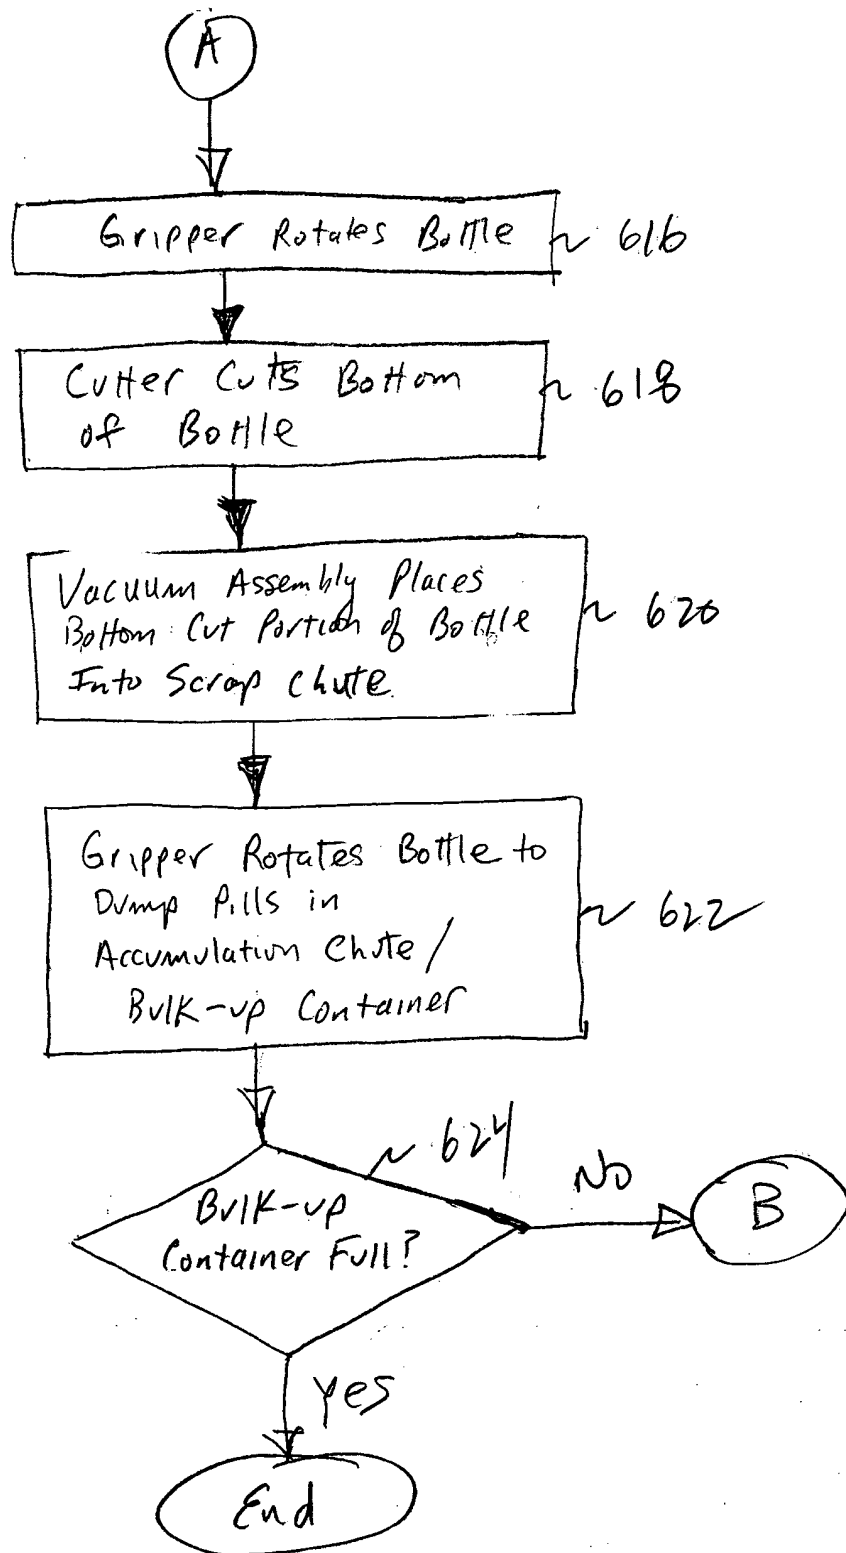 A
Gripper Rotates Bottle ~ 616
Cutter Cuts Bottom
of Bottle
~ 618
Vacuum Assembly Places
Bottom Cut Portion of Bottle
Into Scrap Chute.
~ 620
Gripper Rotates Bottle to
Dump Pills in
Accumulation Chute /
Bulk-up Container
~ 622
~ 624
No
B
Bulk-up
Container Full?
Yes
End